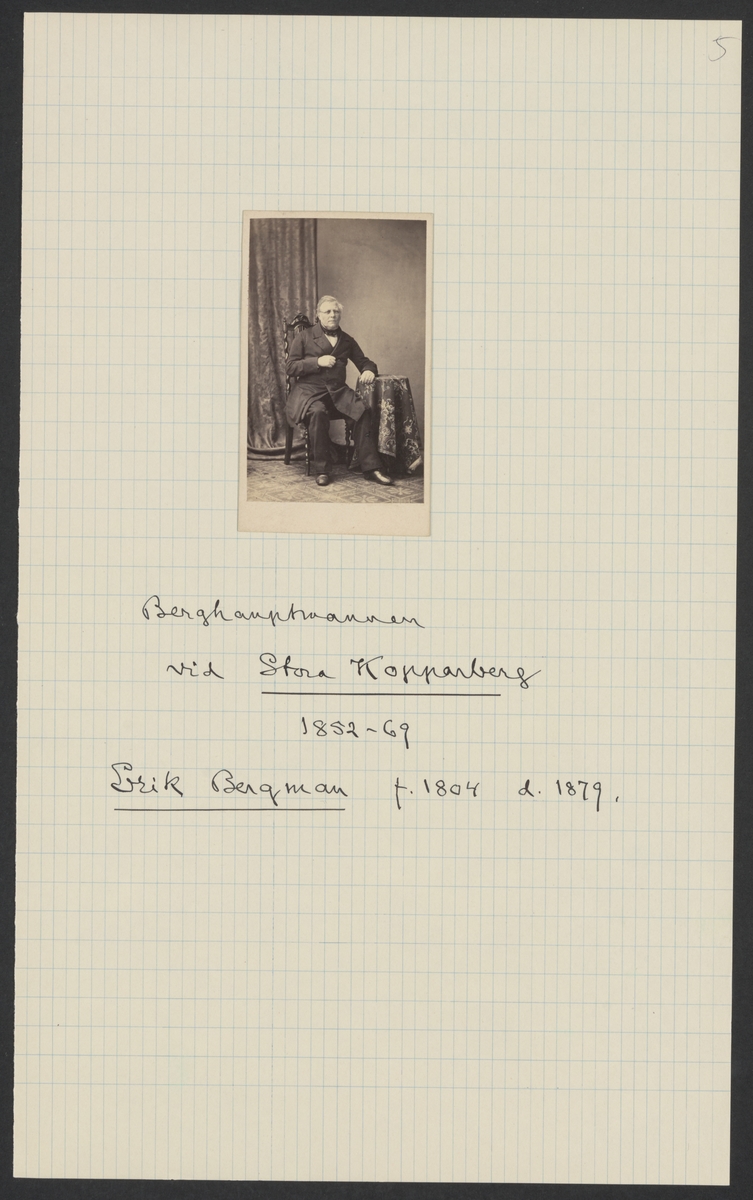 5
Berghauptmannen
vid Stora Kopparberg
1852-69
Erik Bergman f. 1804 d. 1879.